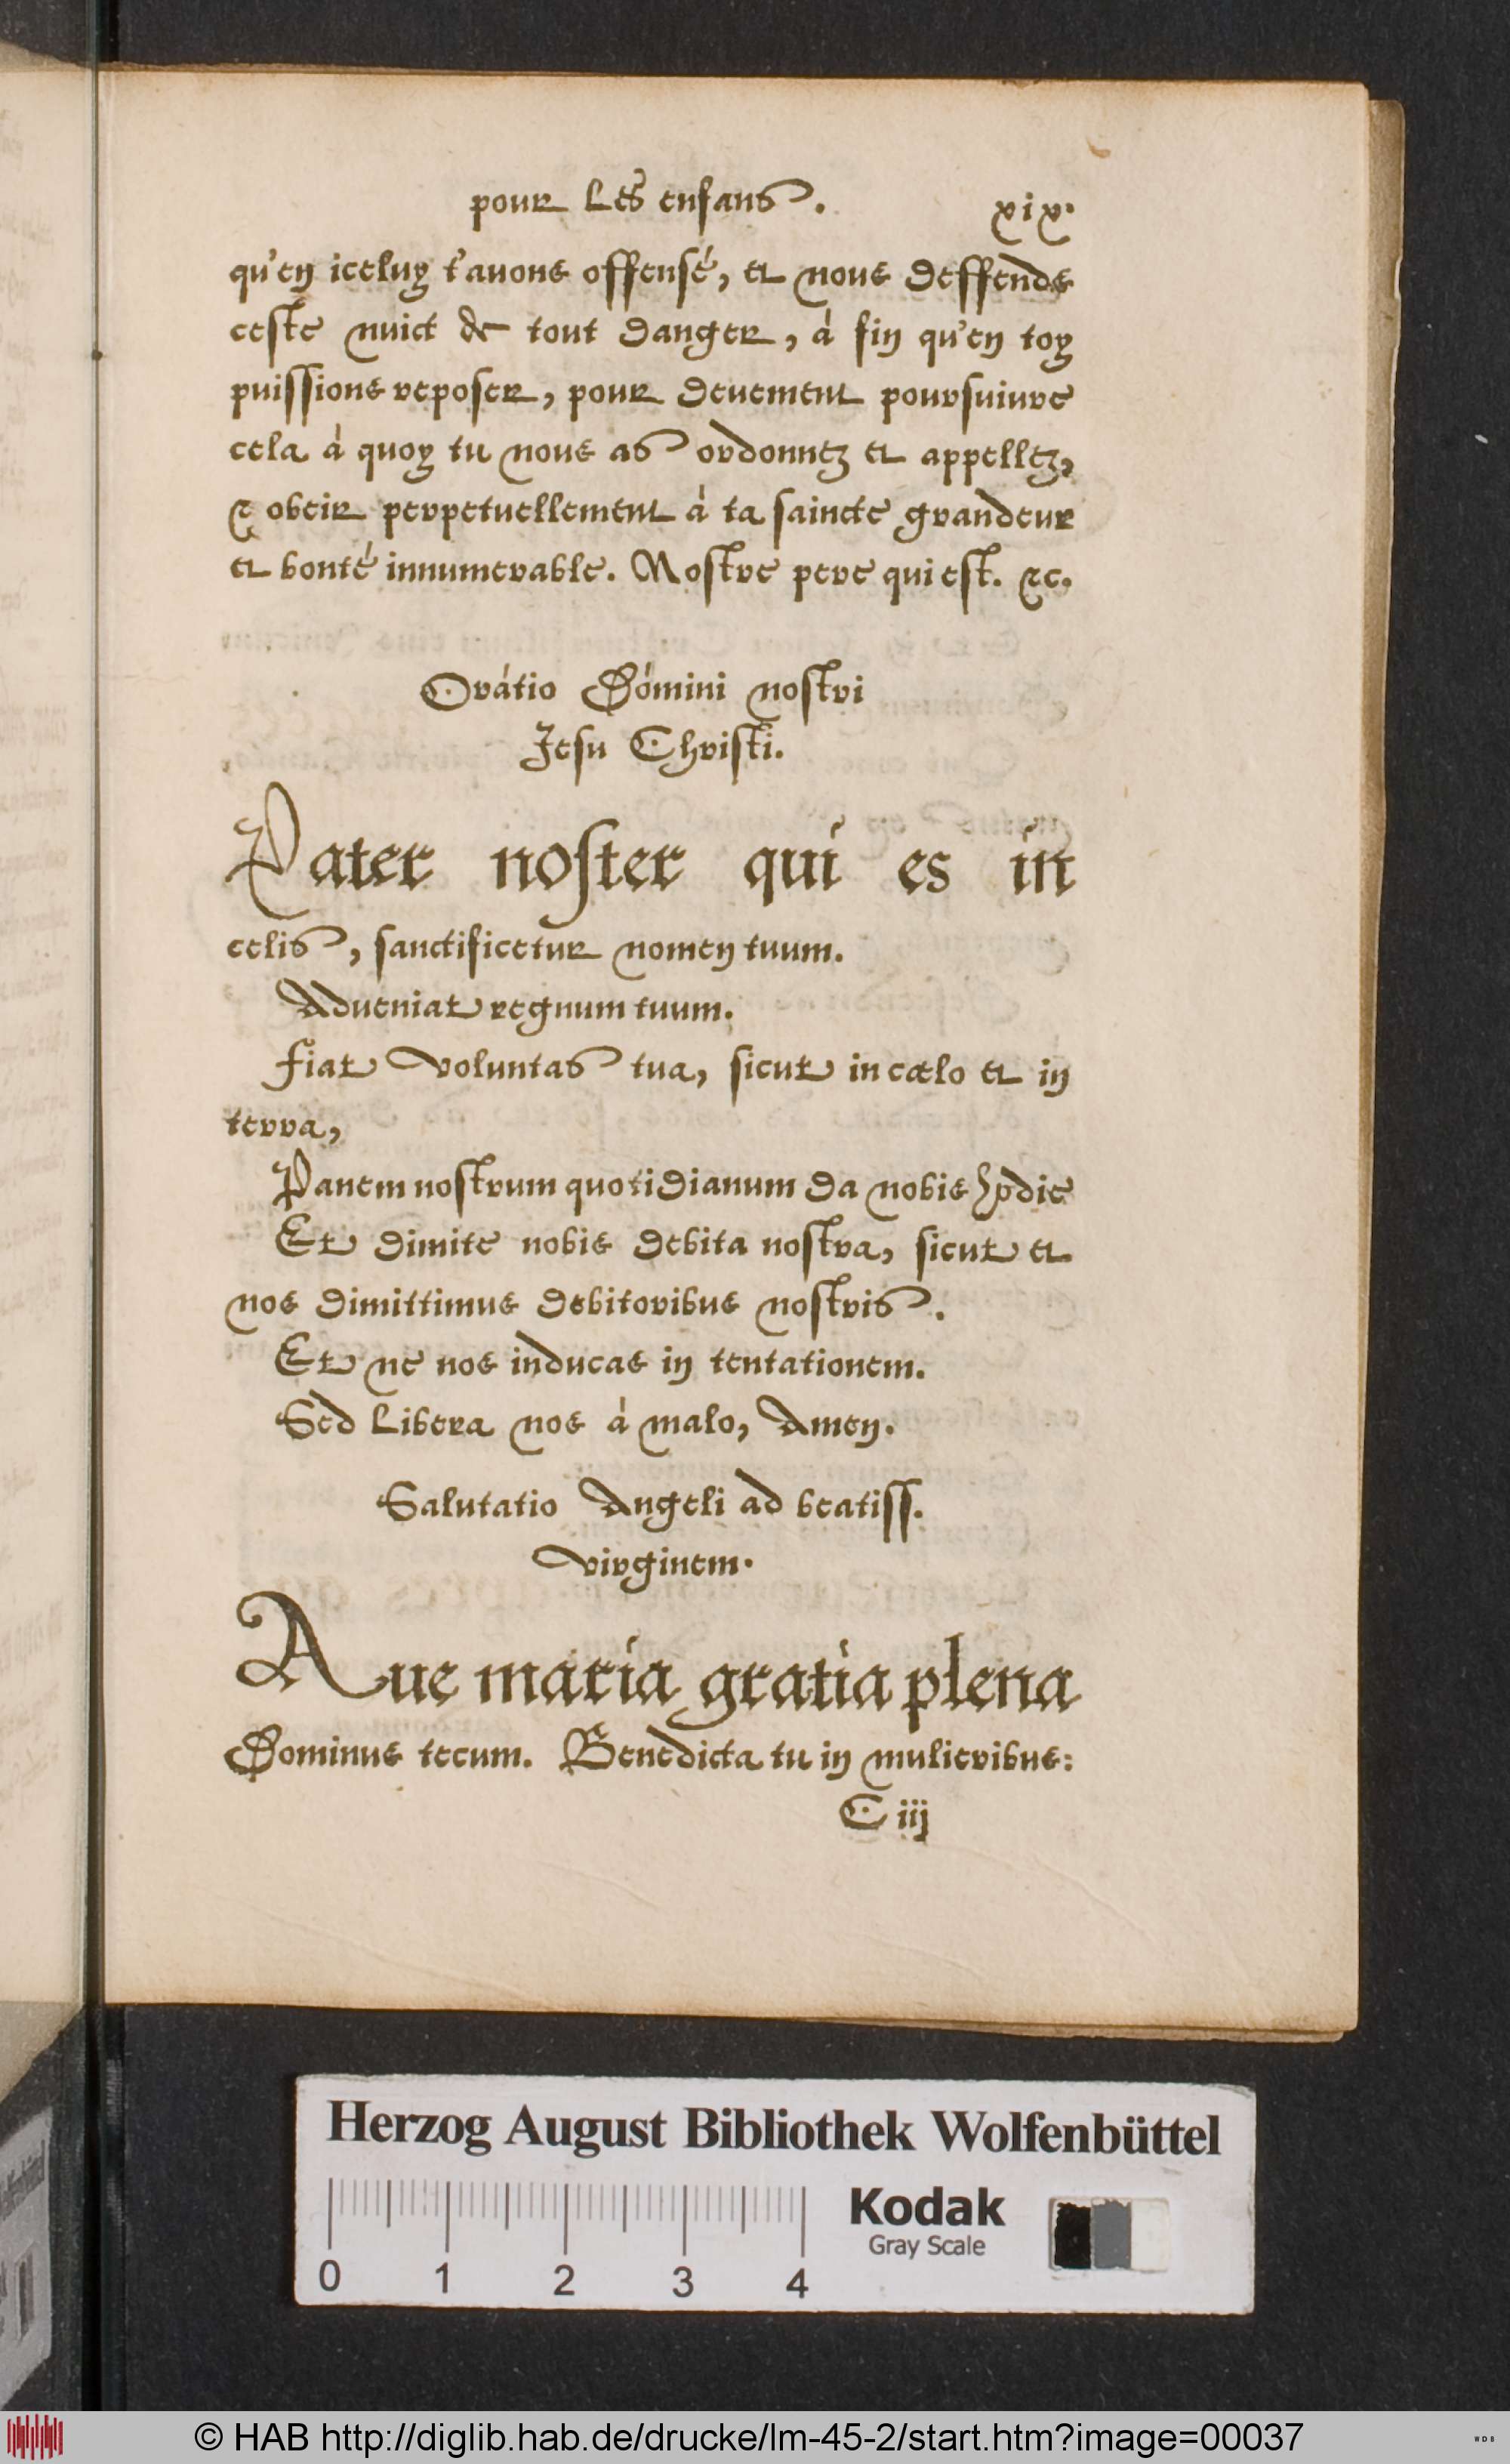 pour les enfans. xix.
qu'en iceluy t'auons offensé, et nous deffends
ceste nuict de tout danger, à fin qu'en toy
puissions reposer, pour deuement poursuiure
cela à quoy tu nous as ordonnez et appellez,
& obeir perpetuellement à ta saincte grandeur
et bonté innumerable. Nostre pere qui est. &c.
Orátio Dómini nostri
Jesu Christi.
Pater noster qui es in
celis, sanctificetur nomen tuum.
Adueniat regnum tuum.
Fiat voluntas tua, sicut in cælo et in
terra,
Panem nostrum quotidianum da nobis hodie
Et dimite nobis debita nostra, sicut et
nos dimittimus debitoribus nostris.
Et ne nos inducas in tentationem.
Sed libera nos à malo, Amen.
Salutatio Angeli ad beatiss.
virginem.
Aue maria gratia plena
Dominus tecum. Benedicta tu in mulieribus:
C iij
Herzog August Bibliothek Wolfenbüttel
Kodak
Gray Scale
0 1 2 3 4
© HAB http://diglib.hab.de/drucke/lm-45-2/start.htm?image=00037